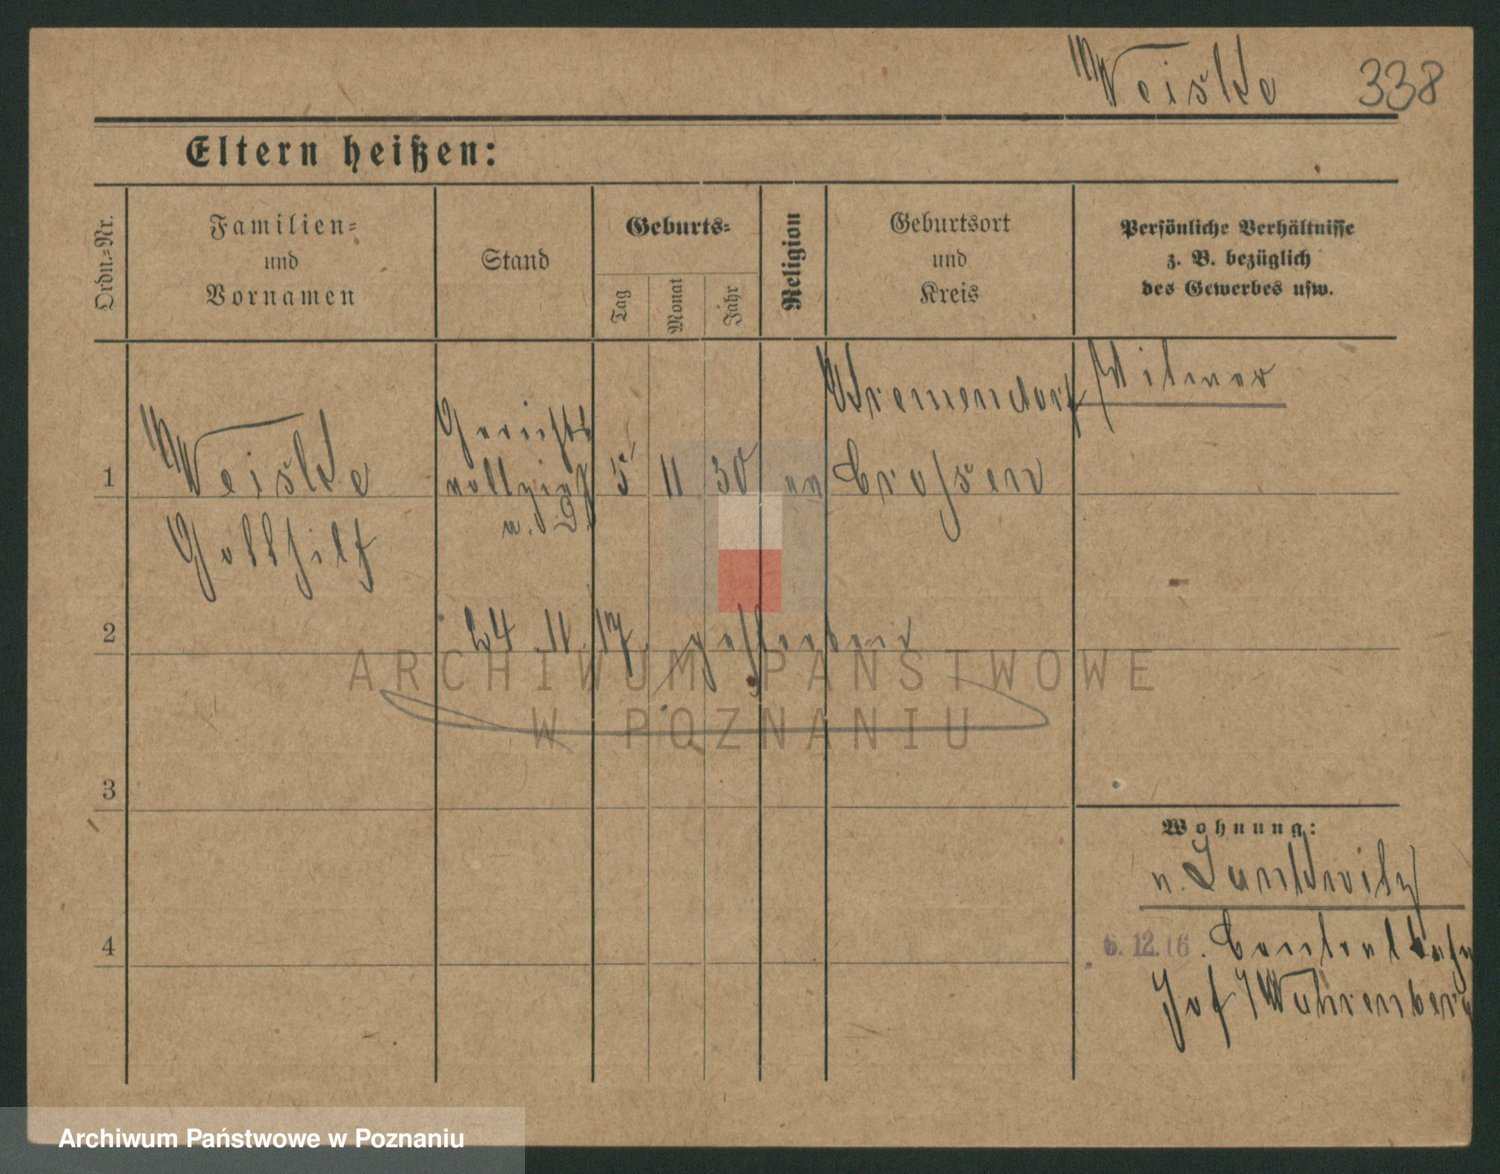 Weiske 338
Eltern heißen:
Ordn.=Nr.
Familien=
und
Vornamen
Stand
Geburts=
Tag
Monat
Jahr
Religion
Geburtsort
und
Kreis
Persönliche Verhältnisse
z. B. bezüglich
des Gewerbes usw.
1
Weiske
Gotthilf
Gerichts
vollzieh
5 11 30 ev
Crossen
Witwer
2
24. 11. 17. gestorben
3
4
Wohnung:
n. Lankwitz
6.12.16. Centralbahn
hof
ARCHIWUM PAŃSTWOWE
W POZNANIU
Archiwum Państwowe w Poznaniu